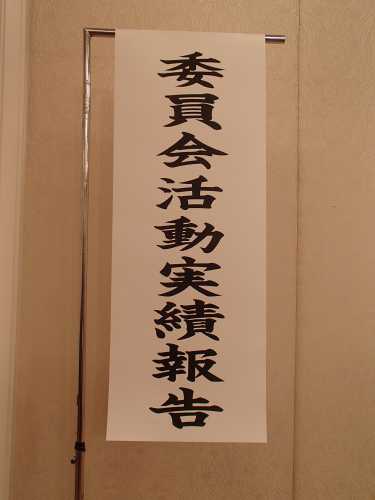 委員会活動実績報告